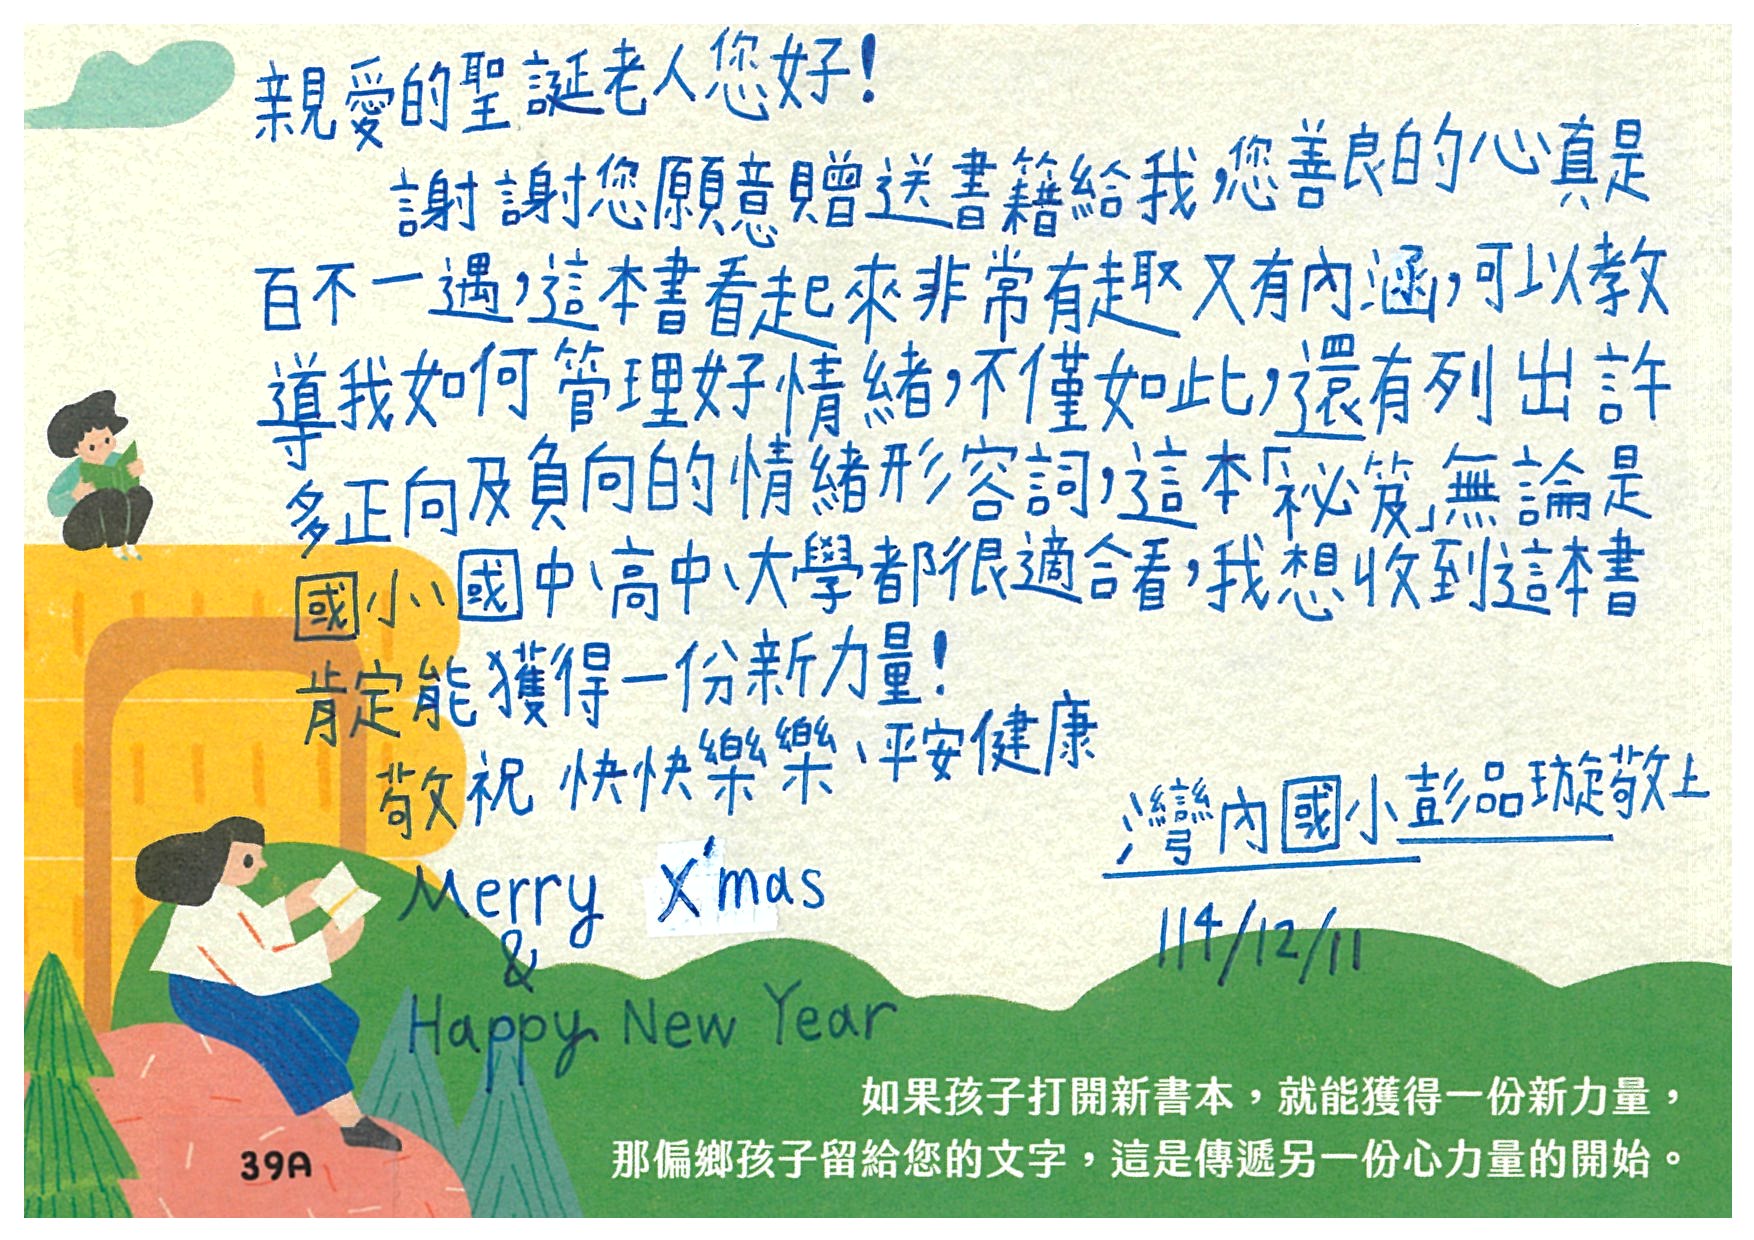 親愛的聖誕老人您好!
謝謝您願意贈送書籍給我,您善良的心真是
百不一遇,這本書看起來非常有趣又有內涵,可以教
導我如何管理好情緒,不僅如此,還有列出許
多正向及負向的情緒形容詞,這本「祕笈」無論是
國小、國中、高中、大學都很適合看,我想收到這本書
肯定能獲得一份新力量!
敬祝 快快樂樂、平安健康
灣內國小彭品璇敬上
Merry X'mas
&
Happy New Year
114/12/11
如果孩子打開新書本,就能獲得一份新力量,
那偏鄉孩子留給您的文字,這是傳遞另一份心力量的開始。
39A